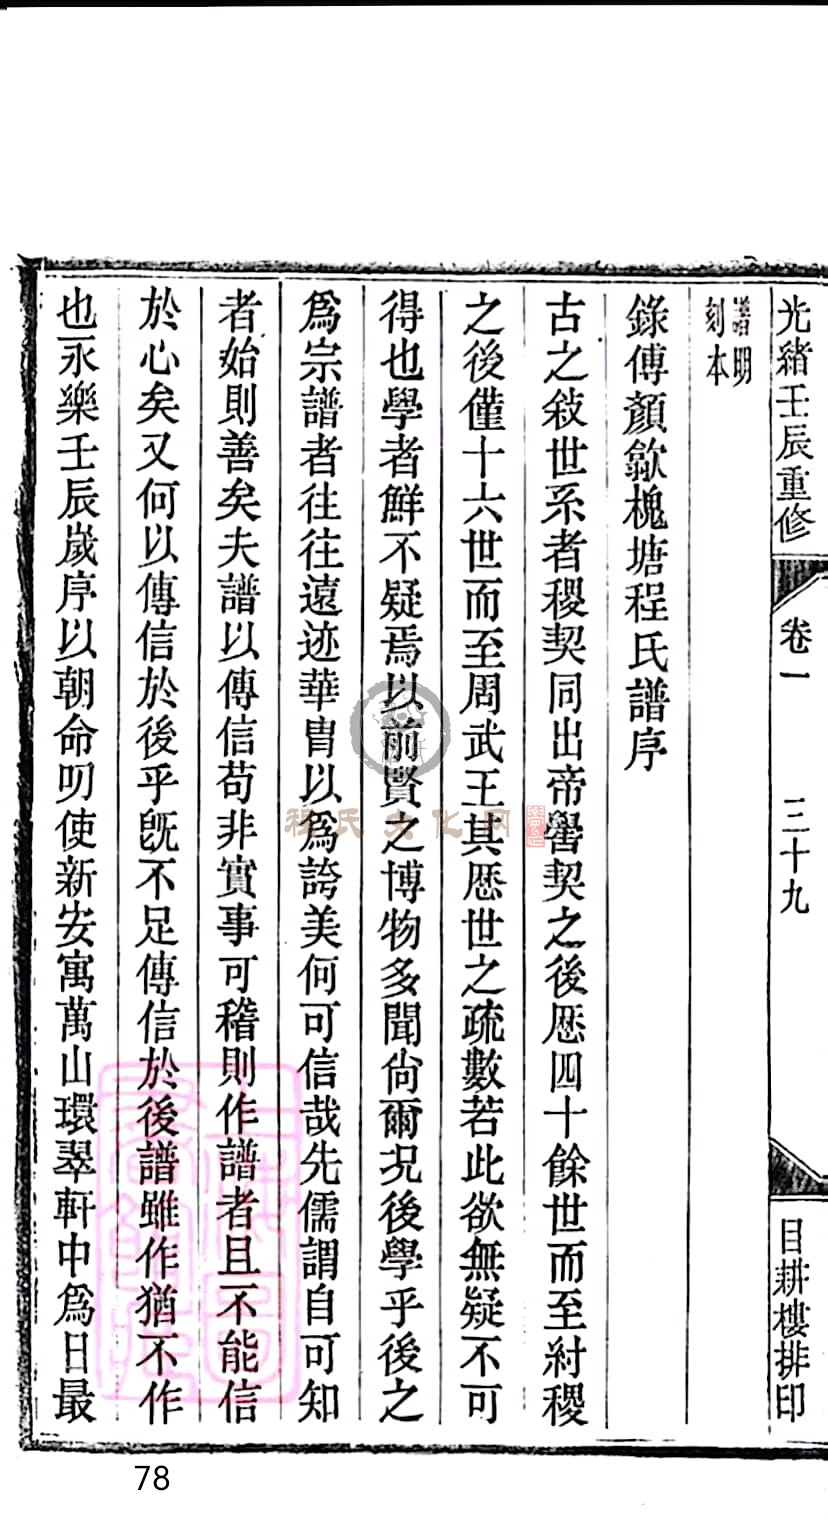 光緒壬辰重修 卷一 三十九 目耕樓排印
譜明
刻本
錄傅顏歙槐塘程氏譜序
古之敍世系者稷契同出帝嚳契之後厯四十餘世而至紂稷
之後僅十六世而至周武王其厯世之疏數若此欲無疑不可
得也學者鮮不疑焉以前賢之博物多聞尙爾况後學乎後之
爲宗譜者往往遠迹華胄以爲誇美何可信哉先儒謂自可知
者始則善矣夫譜以傳信苟非實事可稽則作譜者且不能信
於心矣又何以傳信於後乎旣不足傳信於後譜雖作猶不作
也永樂壬辰嵗序以朝命叨使新安寓萬山環翠軒中爲日最
程氏文化网
78